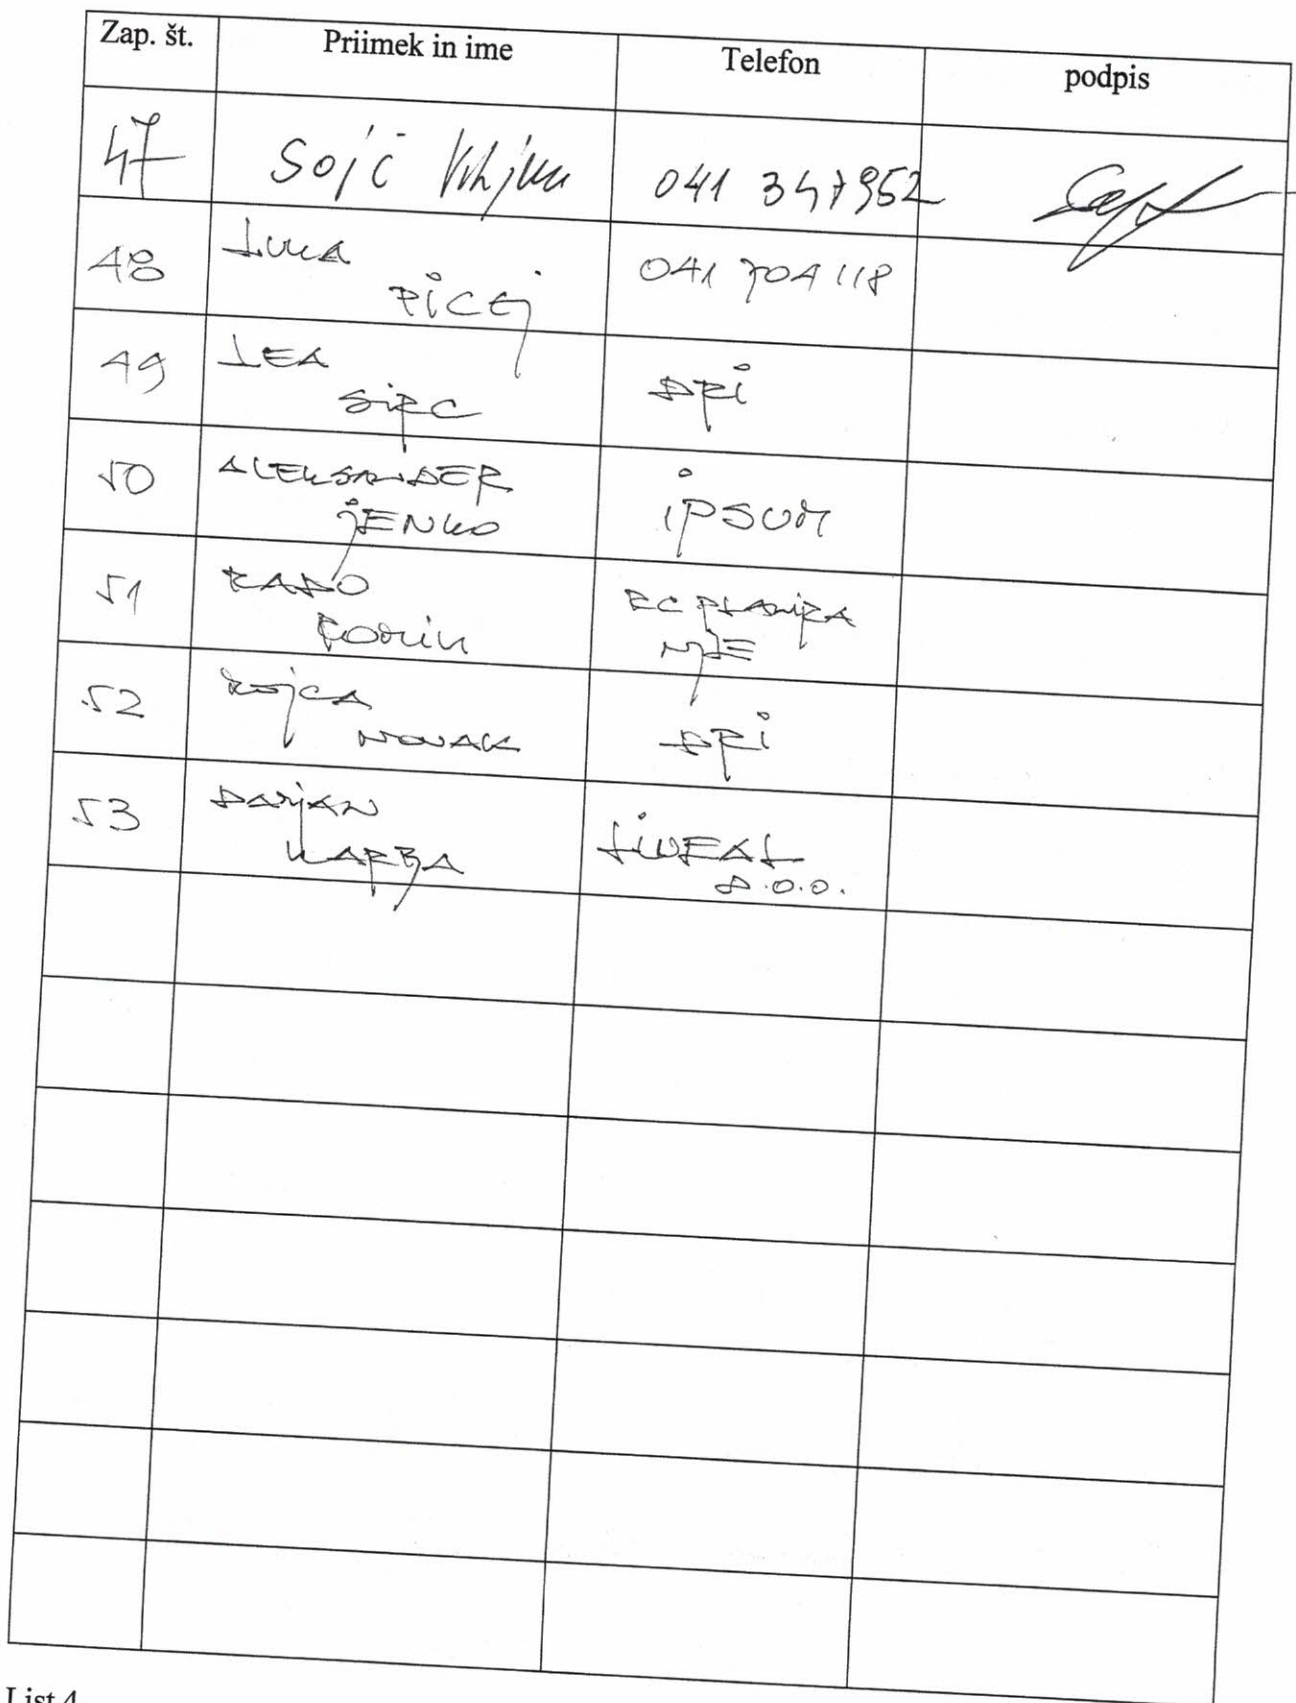 Zap. št. Priimek in ime Telefon podpis
47 Sojč 041 347952
48 LUKA
PICEJ 041 704 118
49 LEA
SIRC DRI
50 ALEKSANDER
JENKO IPSUM
51 RADO
ROMIH RC PLANIRA
NJE
52 MOJCA
NOVAK DRI
53 DARJAN
KARBA LINEAL
D.O.O.
List 4